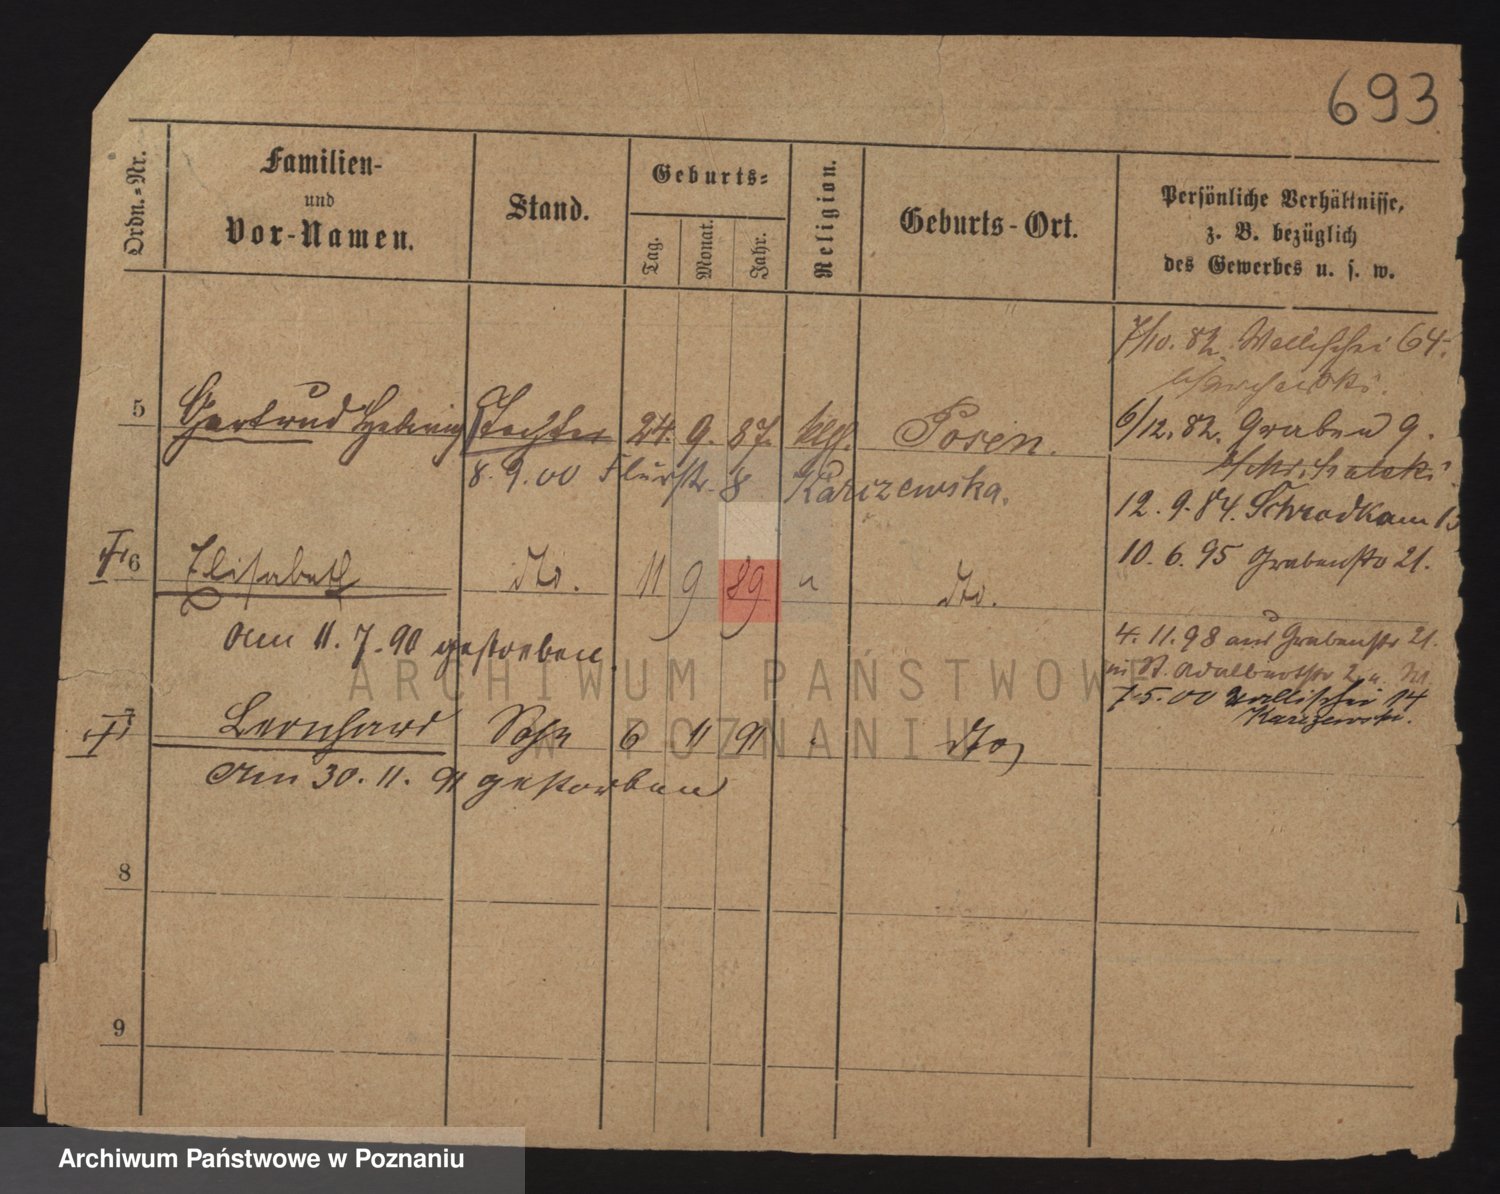 693
Ordn.=Nr.
Familien-
und
Vor-Namen.
Stand.
Geburts=
Tag.
Monat.
Jahr.
Religion.
Geburts-Ort.
Persönliche Verhältnisse,
z. B. bezüglich
des Gewerbes u. s. w.
7/10. 82. Wallischei 64.
5 Gertrud Hedwig Tochter 24. 9. 87. kth. Posen.
6/12. 82. Graben 9.
8. 9. 00 Flurstr. 8 Karczewska.
12. 9. 84. Schrodkam 13
10. 6. 95 Grabenstr 21.
6 Elisabeth dto. 11 9 89 " dto.
am 11. 7. 90 gestorben.
4. 11. 98 aus Grabenstr 21.
n. St. Adalbertstr 2
7. 5. 00 Wallischei 14
Karczewski.
7 Bernhard Sohn 6 11 91 dto
Am 30. 11. 91 gestorben
8
9
ARCHIWUM PAŃSTWOWE
W POZNANIU
Archiwum Państwowe w Poznaniu